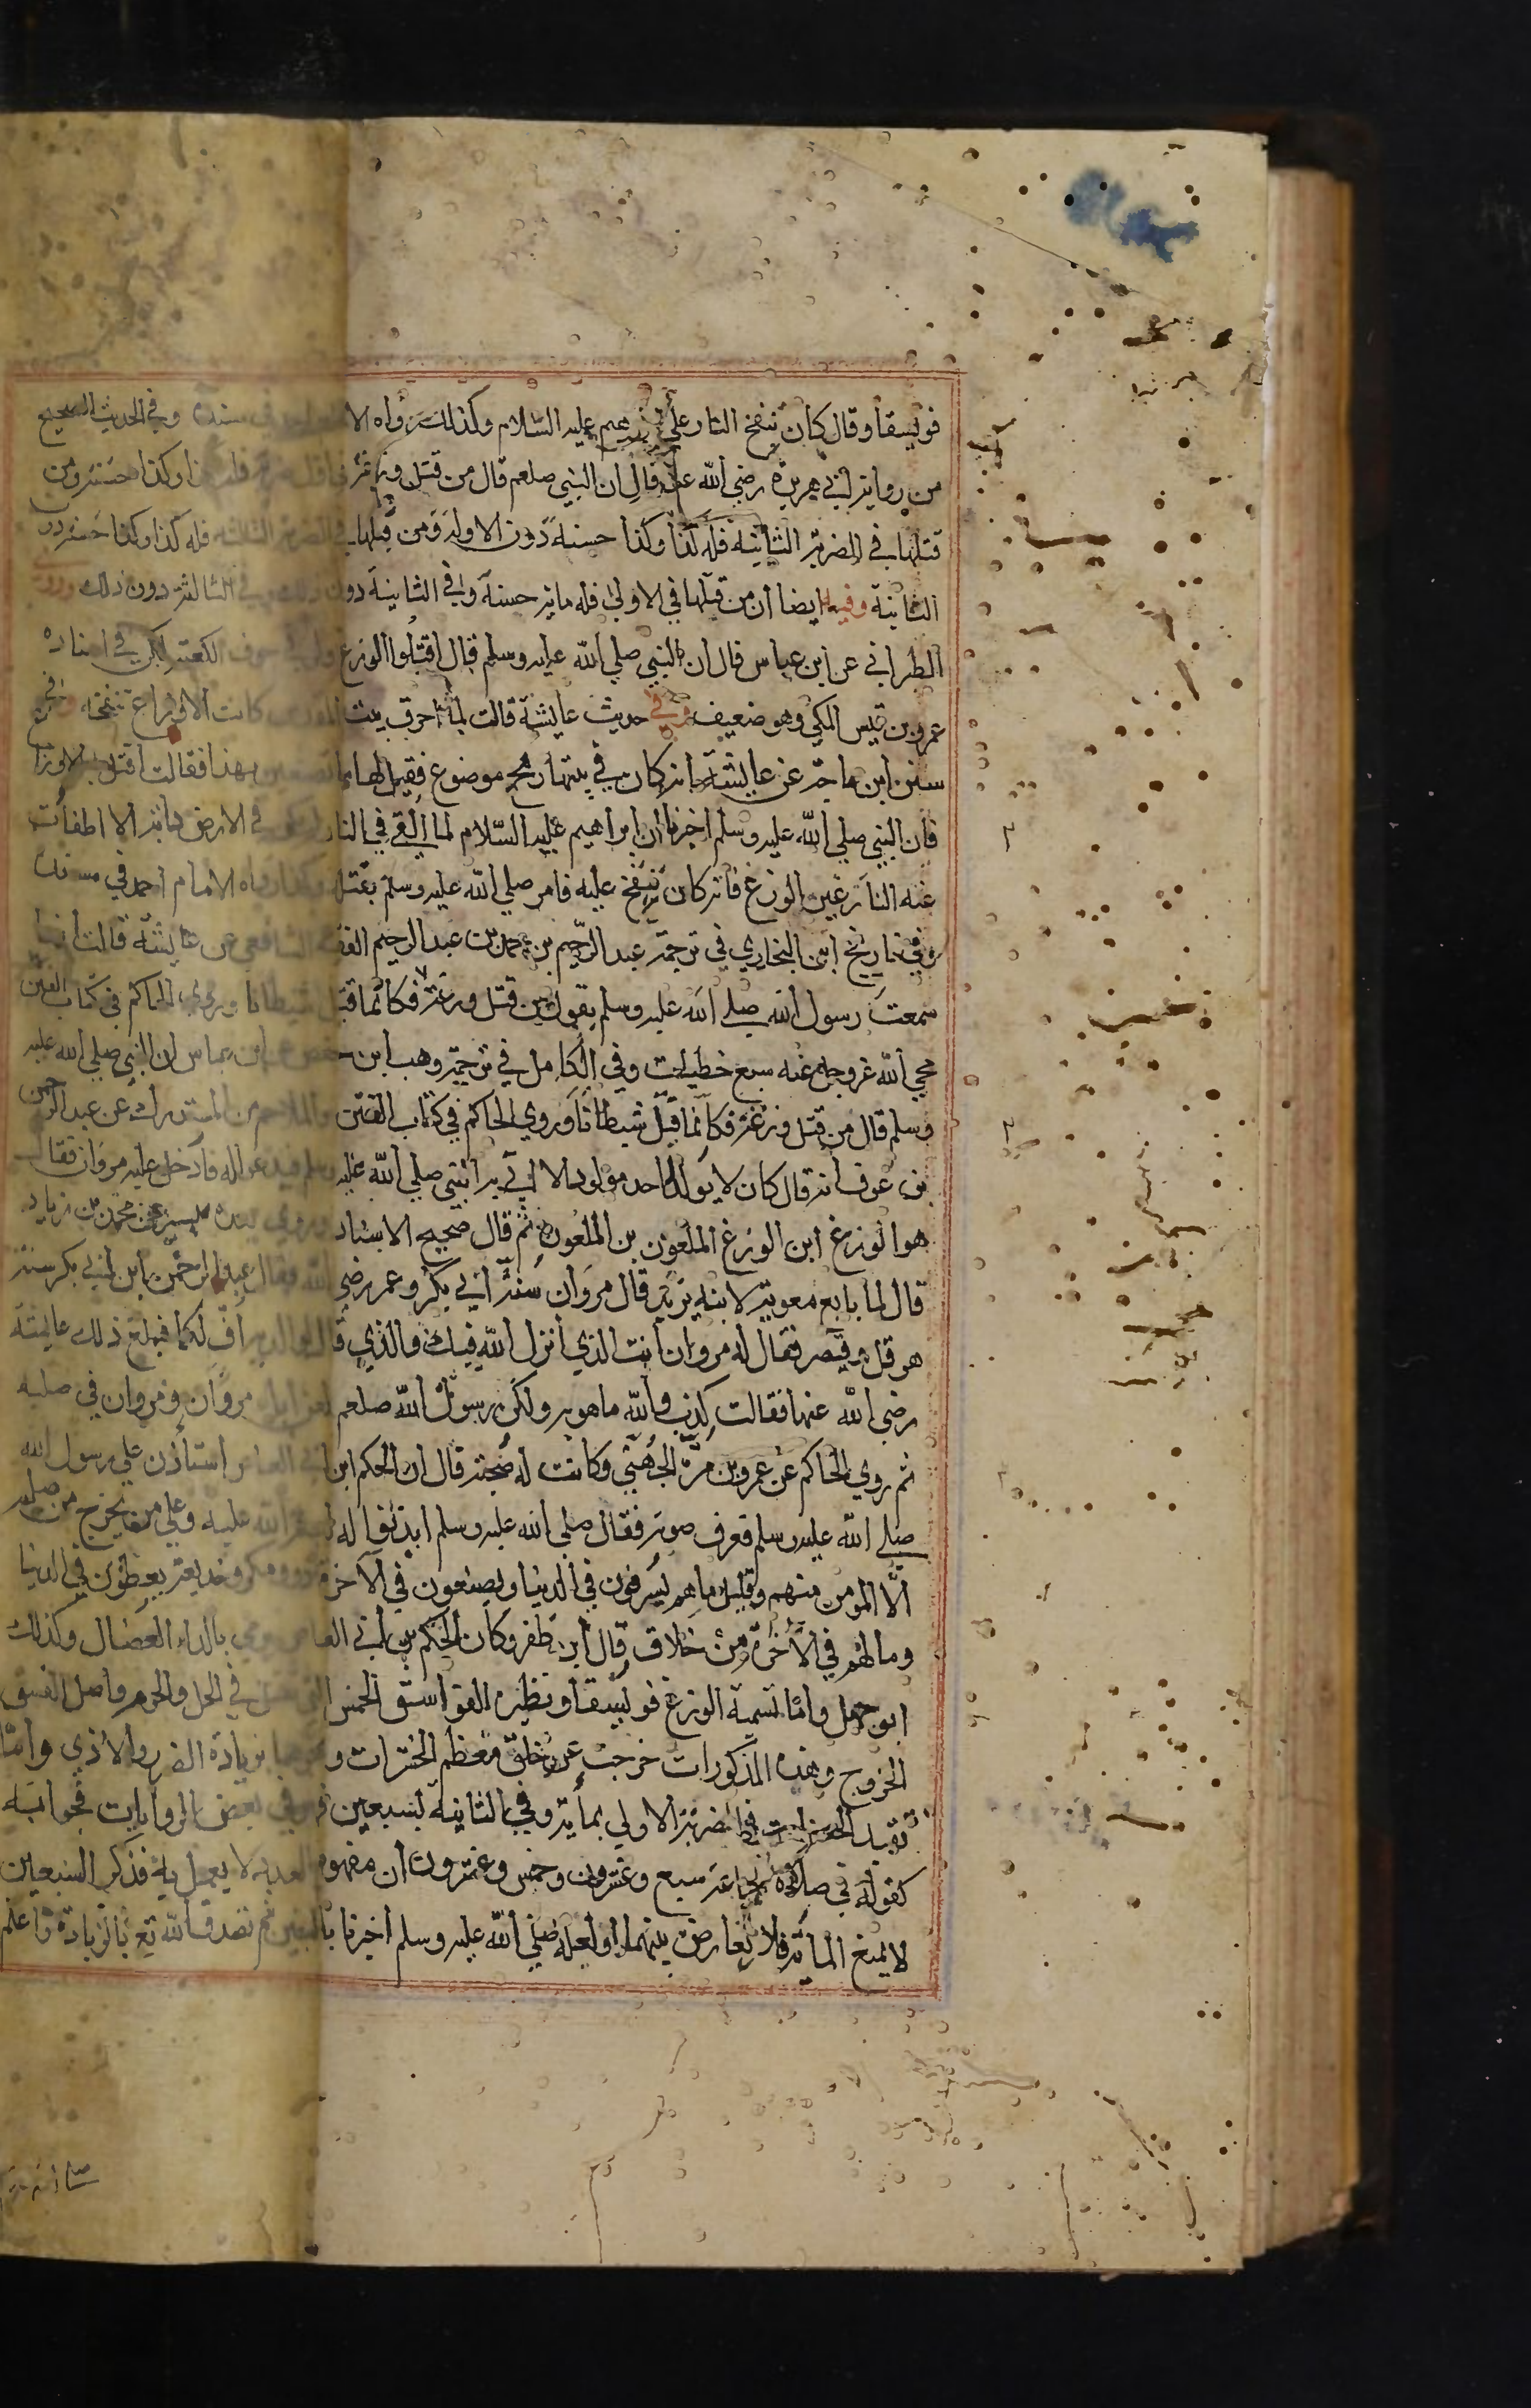 فويسقا وقال كان ينفخ النار علي ابرهيم عليه السّلام وكذلك رواه الامام احمد في مسنده وفي الحديث الصحيح
من رواية ابي هريرة رضي الله عنه قال ان النبي صلعم قال من قتل وزغة في اول ضربة فله كذا وكذا حسنة ومن
قتلها في الضربة الثانية فله كذا وكذا حسنة دون الاولي ومن قتلها في الضربة الثالثه فله كذا وكذا حسنة دون
الثانية وفيه ايضا ان من قتلها في الاولي فله مائة حسنة وفي الثانية دون ذلك وفي الثالثة دون ذلك وروي
الطبراني عن ابن عباس قال ان النبي صلي الله عليه وسلم قال اقتلوا الوزغ ولو في جوف الكعبة لكن في اسناده
عمر بن قيس المكي وهو ضعيف وفي حديث عايشة قالت لما احرق بيت المقدس كانت الاوزاغ تنفخه وفي
سنن ابن ماجة عن عايشة انه كان في بيتها رمح موضوع فقيل لها ما تصنعين بهذا فقالت اقتل به الاوزاغ
فان النبي صلي الله عليه وسلم اخبرنا ان ابراهيم عليه السّلام لما القي في النار لم يكن في الارض دابة الا اطفأت
عنه النار غير الوزغ فانه كان ينفخ عليه فامر صلي الله عليه وسلم بقتله وكذا رواه الامام احمد في مسنده
وفي تاريخ ابن النجاري في ترجمة عبد الرّحيم بن محمد بن عبد الرحيم الفقيه الشافعي عن عايشة قالت انها
سمعت رسول الله صلي الله عليه وسلم يقول من قتل وزغة فكانما قتل شيطانا وروي الحاكم في كتاب الفتن
محي الله عز وجل عنه سبع خطيات وفي الكامل في ترجمة وهب ابن حفص عن ابن عباس ان النبي صلي الله عليه
وسلم قال من قتل وزغة فكانما قتل شيطانا وروي الحاكم في كتاب الفتن والملاحم من المستدرك عن عبد الرحمن
بن عوف انه قال كان لا يولد لاحد مولود الا اتي به النبي صلي الله عليه وسلم فيدعو له فادخل عليه مروان فقال
هو الوزغ ابن الوزغ الملعون بن الملعون ثم قال صحيح الاسناد وروي بعده بيسير عن محمد بن زياد
قال لما بايع معوية لابنه يزيد قال مروان سنة ابي بكر وعمر رضي الله فقال عبد الرحمن ابن ابي بكر سنة
هرقل وقيصر فقال له مروان انت الذي انزل الله فيك والذي قال لوالديه اف لكما فبلغ ذلك عايشة
رضي الله عنها فقالت كذب والله ما هو به ولكن رسول الله صلعم لعن ابا مروان ومروان في صلبه
ثم روي الحاكم عن عمرو بن مرة الجهني وكانت له صحبة قال ان الحكم ابن ابي العاص استأذن علي رسول الله
صلي الله عليه وسلم فعرف صوته فقال صلي الله عليه وسلم ايذنوا له لعنة الله عليه وعلي من يخرج من صلبه
الّا المومن منهم وقليل ما هم يسرفون في الدنيا ويضعون في الآخرة ذوو مكر وخديعة يعطون في الدنيا
وما لهم في الآخرة من خلاق قال ابن ظفر وكان الحكم بن ابي العاص رمي بالداء العضال وكذلك
ابو جهل واما تسمية الوزغ فويسقا ونظيره الفواسق الخمس التي تقتل في الحل والحرم واصل الفسق
الخروج وهذه المذكورات خرجت عن خلق معظم الحشرات ونحوها بزيادة الضر والاذي وامّا
تقييد الحسنات في الضربة الاولي بمأية وفي الثانية لسبعين فهو في بعض الروايات فجوابه
كقوله في صلاة الجماعة سبع وعشرون وخمس وعشرون ان مفهوم العدد لا يعمل به فذكر السبعين
لا يمنع المأئة فلا تعارض بينهما او لعله صلي الله عليه وسلم اخبرنا بالسبعين ثم تصدق الله تع بالزيادة فاعلم